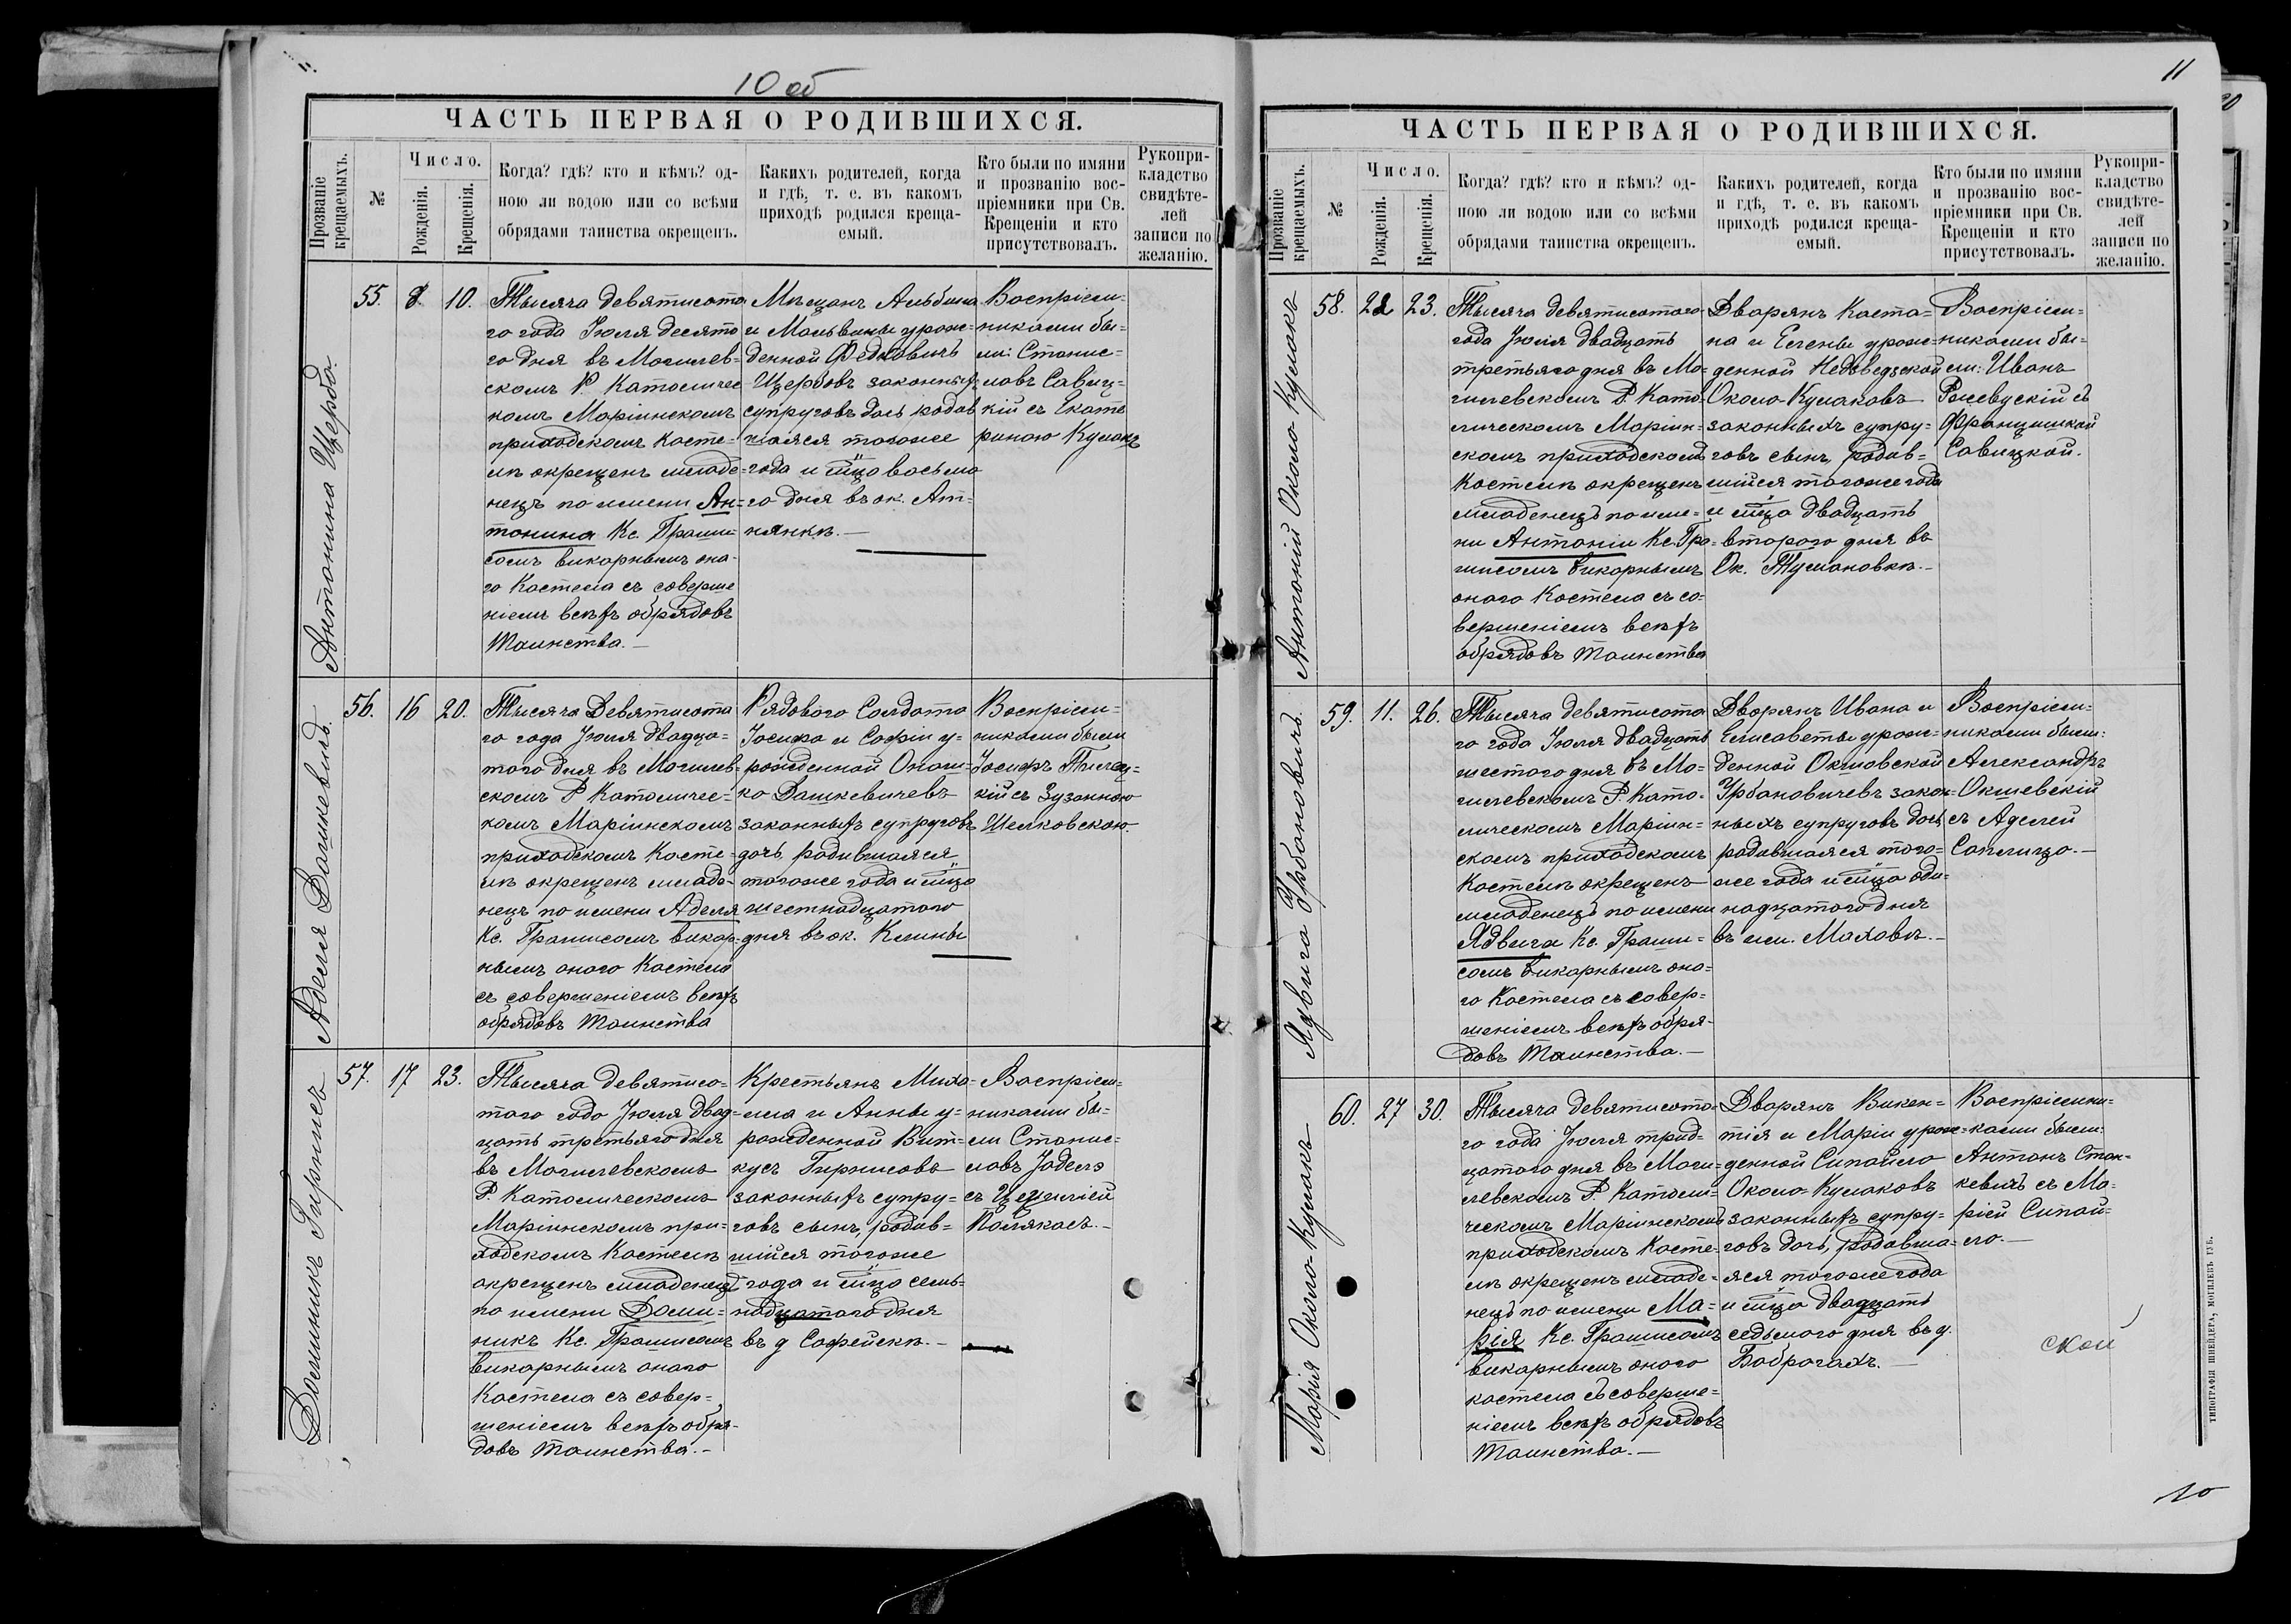 10 об
ЧАСТЬ ПЕРВАЯ О РОДИВШИХСЯ.
Прозваніе крещаемыхъ.
№
Число.
Рожденія.
Крещенія.
Когда? гдѣ? кто и кѣмъ? од-
ною ли водою или со всѣми
обрядами таинства окрещенъ.
Какихъ родителей, когда
и гдѣ, т. е. въ какомъ
приходѣ родился креща-
емый.
Кто были по имяни
и прозванію вос-
пріемники при Св.
Крещеніи и кто
присутствовалъ.
Рукопри-
кладство
свидѣте-
лей
записи по
желанію.
Антонина Щерба.
55.
8.
10.
Тысяча девятисота
го года Іюля десято
го дня въ Могилев-
скомъ Р. Католичес
комъ Маріинскомъ
приходскомъ Косте-
лѣ окрещенъ младе-
нецъ по имени Ан-
тонина Кс. Грали-
сомъ викарнымъ она-
го Костела съ соверше
ніемъ всѣхъ обрядовъ
Таинства. —
Мѣщанъ Альбина
и Мальвины урож-
денной Федковичъ
Щербовъ законныхъ
супруговъ дочь родив
шаяся тогоже
года и мѣца восьма
го дня въ ок. Ат-
нянкѣ. —
Воспріем-
никами бы-
ли: Станис-
лавъ Савиц-
кій съ Екате
риною Кулакъ
Аделя Дашкевичъ.
56.
16
20.
Тысяча Девятисота
го года Іюля двадца-
таго дня въ Могилев-
скомъ Р. Католичес-
комъ Маріинскомъ
приходскомъ Косте-
лѣ окрещенъ младе-
нецъ по имени Аделя
Кс. Гралисомъ викар-
нымъ онаго Костела
съ совершеніемъ всѣхъ
обрядовъ Таинства
Рядового Солдата
Іосифа и Софіи у-
рожденной Опаль-
ко Дашкевичевъ
законныхъ супруговъ
дочь, родившаяся
тогоже года и мѣца
шестнадцатого
дня въ ок. Клины
Воспріем-
никами были
Іосифъ Пилец-
кій съ Зузанною
Шелковскою.
Доминикъ Гирнисъ
57.
17
23.
Тысяча девятисо-
таго года Іюля двад-
цать третьяго дня
въ Могилевскомъ
Р. Католическомъ
Маріинскомъ при-
ходскомъ Костелѣ
окрещенъ младенецъ
по имени Доми-
никъ Кс. Гралисомъ
викарнымъ онаго
Костела съ совер-
шеніемъ всѣхъ обря-
довъ Таинства. —
Крестьянъ Миха-
ила и Анны у-
рожденной Вит-
кусъ Гирнисовъ
законныхъ супру-
говъ сынъ, родив-
шійся тогоже
года и мѣца семь-
надцатого дня
въ д Софейскѣ. —
Воспріем-
никами бы-
ли Станис-
лавъ Іодело
съ Цециліей
Полякасъ. —
11
ЧАСТЬ ПЕРВАЯ О РОДИВШИХСЯ.
Прозваніе крещаемыхъ.
№
Число.
Рожденія.
Крещенія.
Когда? гдѣ? кто и кѣмъ? од-
ною ли водою или со всѣми
обрядами таинства окрещенъ.
Какихъ родителей, когда
и гдѣ, т. е. въ какомъ
приходѣ родился креща-
емый.
Кто были по имяни
и прозванію вос-
пріемники при Св.
Крещеніи и кто
присутствовалъ.
Рукопри-
кладство
свидѣте-
лей
записи по
желанію.
Антоній Около Кулакъ
58.
22
23.
Тысяча девятисотаго
года Іюля двадцать
третьяго дня въ Мо-
гилевскомъ Р. Като-
лическомъ Маріин-
скомъ приходскомъ
Костелѣ окрещенъ
младенецъ по име-
ни Антоніи Кс. Гра-
лисомъ викарнымъ
онаго Костела съ со-
вершеніемъ всѣхъ
обрядовъ Таинства
Дворянъ Каста-
на и Елены урож-
денной Недзведзской
Около-Кулаковъ
законныхъ супру-
говъ сынъ, родив-
шійся тогоже года
и мѣца двадцать
второго дня въ
Ок. Тумановкѣ. —
Воспріем-
никами бы-
ли: Иванъ
Рыевускій съ
Францишкой
Савицкой.
Ядвига Урбановичъ.
59.
11.
26.
Тысяча девятисота
го года Іюля двадцать
шестого дня въ Мо-
гилевскомъ Р. Като-
лическомъ Маріин-
скомъ приходскомъ
Костелѣ окрещенъ
младенецъ по имени
Ядвига Кс. Грали-
сомъ викарнымъ она-
го Костела съ совер-
шеніемъ всѣхъ обря-
довъ Таинства. —
Дворянъ Ивана и
Елисаветы урож-
денной Окшовской
Урбановичевъ закон-
ныхъ супруговъ дочь
родившаяся того-
же года и мѣца оди-
надцатого дня
въ им. Маховѣ. —
Воспріем-
никами были:
Александръ
Окшевскій
съ Аделей
Саплица. —
Марія Около-Кулакъ
60.
27
30.
Тысяча девятисота-
го года Іюля трид-
цатого дня въ Моги-
левскомъ Р. Католи-
ческомъ Маріинскомъ
приходскомъ Косте-
лѣ окрещенъ младе-
нецъ по имени Ма-
рія Кс. Гралисомъ
викарнымъ онаго
костела съ соверше-
ніемъ всѣхъ обрядовъ
Таинства. —
Дворянъ Викен-
тія и Маріи урож-
денной Сипайло
Около-Кулаковъ
законныхъ супру-
говъ дочь, родивша-
яся тогоже года
и мѣца двадцать
седьмого дня въ д.
Боброгахъ. —
Воспріемни-
ками были:
Антонъ Стан-
кевичъ съ Ма-
ріей Сипай-
ло. —
ской
ТИПОГРАФІЯ ШНЕЙДЕРА, МОГИЛЕВЪ ГУБ.
10